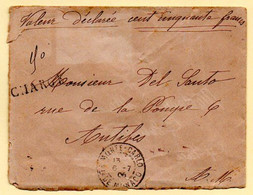 Valeur déclarée cent cinquante francs
Monsieur Del Santo
rue de la Pompe 6
Antibes
A. M.
MONTE-CARLO